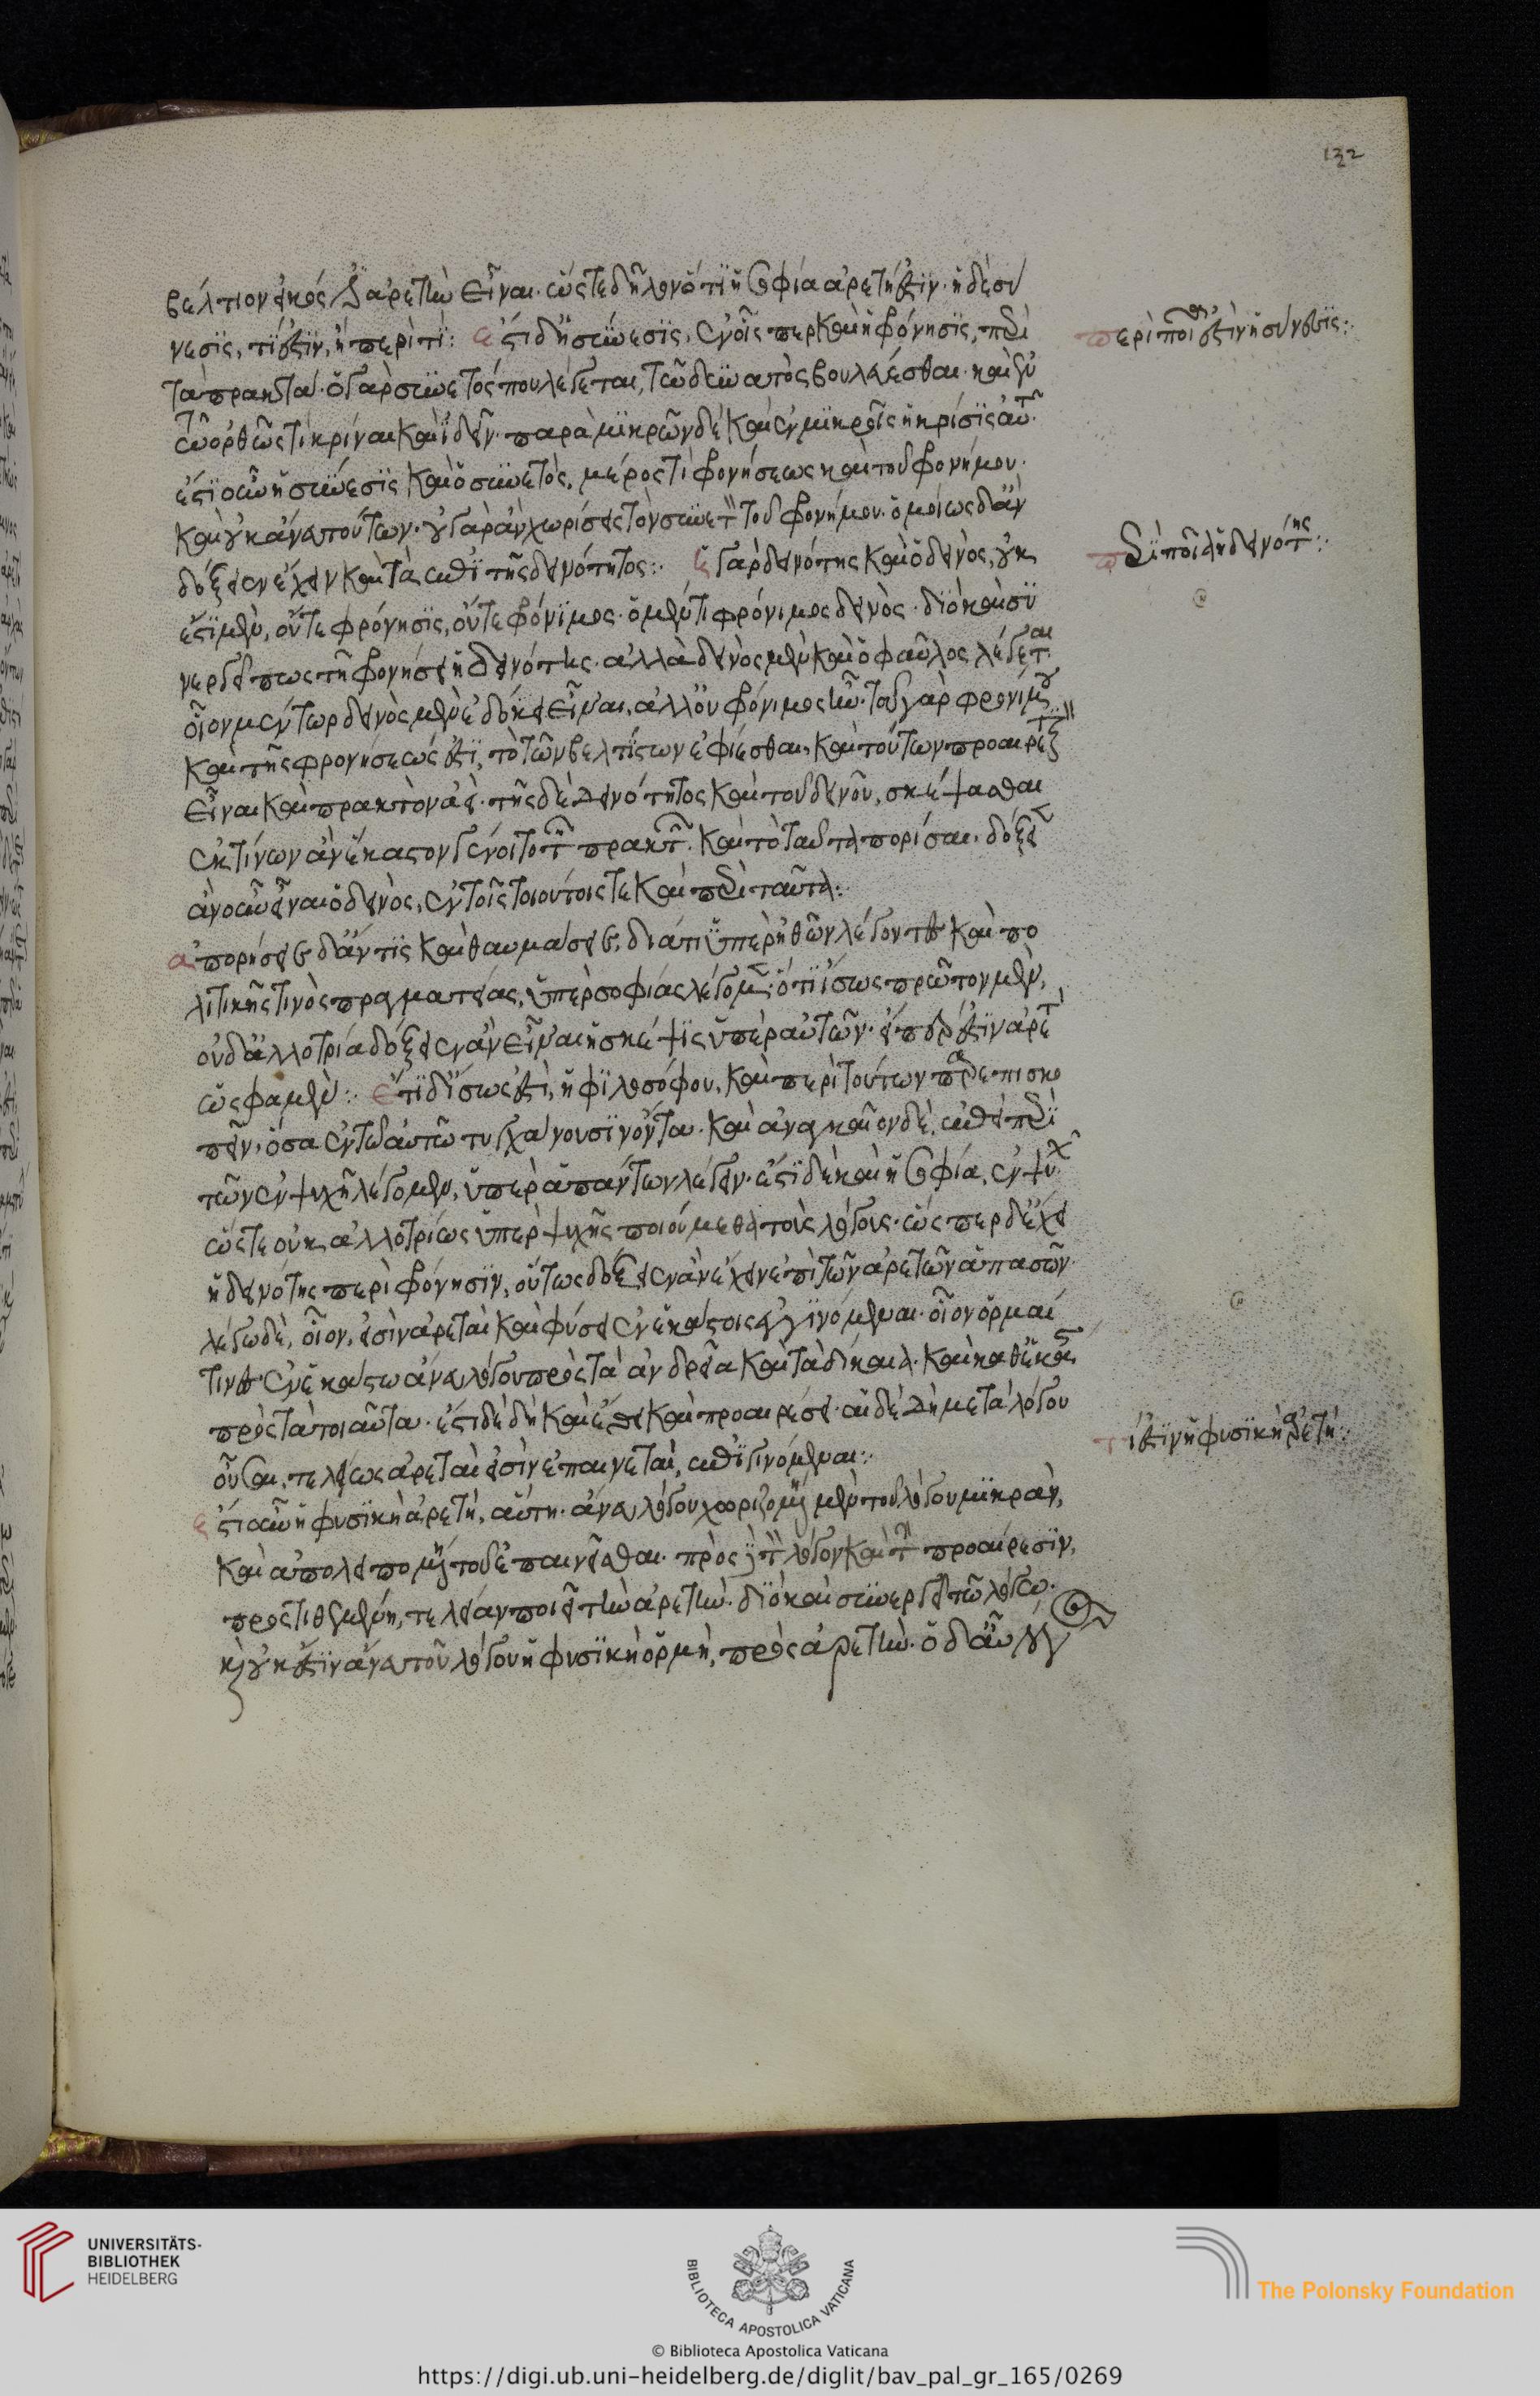 βέλτιον εἰκὸς καὶ ἀρετὴν εἶναι. ὥστε δῆλον ὅτι ἡ σοφία ἀρετή ἐστιν. ἡ δὲ σύ
νεσις, τί ἐστιν, ἢ περὶ τί: ἔστι δ' ἡ σύνεσις, ἐν οἷς περ καὶ ἡ φρόνησις, περὶ
τὰ πρακτά. ὁ γὰρ συνετός που λέγεται, τῶ δυνατὸς βουλεύεσθαι. καὶ ἐν
τῶ ὀρθῶς τι κρίναι καὶ ἰδεῖν. παρὰ μικρῶν δὲ καὶ ἐν μικροῖς ἡ κρίσις αὐτοῦ.
ἔστι οὖν ἡ σύνεσις καὶ ὁ συνετὸς, μέρος τὶ φρονήσεως καὶ τοῦ φρονίμου.
καὶ οὐκ ἄνευ τούτων. οὐ γὰρ ἂν χωρίσεις τὸν συνετὸν τοῦ φρονίμου. ὁμοίως δ' ἂν
δόξειεν ἔχειν καὶ τὰ ἐπὶ τῆς δεινότητος: ἡ γὰρ δεινότης καὶ ὁ δεινὸς, οὐκ
ἔστι μὲν, οὔτε φρόνησις, οὔτε φρόνιμος. ὁ μέντι φρόνιμος δεινὸς. διὸ καὶ συ
νεργεῖ πως τῆ φρονήσει ἡ δεινότης. ἀλλὰ δεινὸς μὲν καὶ ὁ φαῦλος λέγεται
οἷον μέντωρ δεινὸς μὲν ἐδόκει εἶναι, ἀλλ' οὐ φρόνιμος ἦν. τοῦ γὰρ φρονίμου
καὶ τῆς φρονήσεώς ἐστι, τὸ τῶν βελτίστων ἐφίεσθαι, καὶ τούτων προαιρετικὸν
εἶναι καὶ πρακτὸν ἀεί. τῆς δὲ δεινότητος καὶ τοῦ δεινοῦ, σκέψασθαι
ἐκ τίνων ἂν ἕκαστον γένοιτο τῶν πρακτῶν. καὶ τὸ ταῦτα πορίσαι. δόξειεν
ἂν οὖν εἶναι ὁ δεινὸς, ἐν τοῖς τοιούτοις τε καὶ περὶ ταῦτα:
ἀπορήσειε δ' ἄν τις καὶ θαυμάσειε, διὰ τί ὑπὲρ ἠθῶν λέγοντες καὶ πο
λιτικῆς τινὸς πραγματείας, ὑπὲρ σοφίας λέγομεν: ὅτι ἴσως πρῶτον μὲν,
οὐδ' ἀλλοτρία δόξειεν ἂν εἶναι ἡ σκέψις ὑπὲρ αὐτῶν. εἴπερ ἐστὶν ἀρετὴ
ὥς φαμεν: ἔτι δ' ἴσως ἐστὶ, ἡ φιλοσόφου, καὶ περὶ τούτων παρεπισκο
πεῖν. ὅσα ἐν τῶ αὐτῶ τυγχάνουσιν ὄντα. καὶ ἀναγκαῖον δὲ, ἐπεὶ περὶ
τῶν ἐν ψυχῆ λέγομεν, ὑπὲρ ἁπάντων λέγειν. ἔστι δὲ καὶ ἡ σοφία, ἐν ψυχῆ
ὥστε οὐκ ἀλλοτρίως ὑπὲρ ψυχῆς ποιούμεθα τοὺς λόγους. ὥς περ δ' ἔχει
ἡ δεινότης περὶ φρόνησιν, οὕτως δόξειεν ἂν ἔχειν ἐπὶ τῶν ἀρετῶν ἁπασῶν.
λέγω δὲ, οἷον, εἰσὶν ἀρεταὶ καὶ φύσει ἐν ἑκάστοις ἐγγινόμεναι. οἷον ὁρμαί
τινες ἐν ἑκάστω ἄνευ λόγου πρὸς τὰ ἀνδρεῖα καὶ τὰ δίκαια. καὶ καθ' ἑκάστην
πρὸς τὰ τοιαῦτα. ἔστι δὲ δὴ καὶ ἔθει καὶ προαιρέσει. αἱ δὲ δὴ μετὰ λόγου
οὖσαι, τελείως ἀρεταὶ εἰσὶν ἐπαινεταὶ, ἐπιγινόμεναι:
ἔστι οὖν ἡ φυσικὴ ἀρετὴ, αὕτη. ἄνευ λόγου χωριζομένη μὲν τοῦ λόγου μικρὰν,
καὶ ἀπολειπομένη τοῦ ἐπαινεῖσθαι. πρὸς δὲ τὸν λόγον καὶ τὴν προαίρεσιν,
προστιθεμένη, τελείαν ποιεῖ τὴν ἀρετὴν. διὸ καὶ συνεργεῖ τῶ λόγω.
καὶ οὐκ ἔστιν ἄνευ τοῦ λόγου ἡ φυσικὴ ὁρμὴ, πρὸς ἀρετὴν. ὁ δ' αὖ
132
περὶ ποῖα ἐστὶν ἡ σύνεσις:
περὶ ποῖα ἡ δεινότης:
τί ἐστιν ἡ φυσικὴ ἀρετή:
UNIVERSITÄTS-
BIBLIOTHEK
HEIDELBERG
BIBLIOTECA APOSTOLICA VATICANA
The Polonsky Foundation
© Biblioteca Apostolica Vaticana
https://digi.ub.uni-heidelberg.de/diglit/bav_pal_gr_165/0269